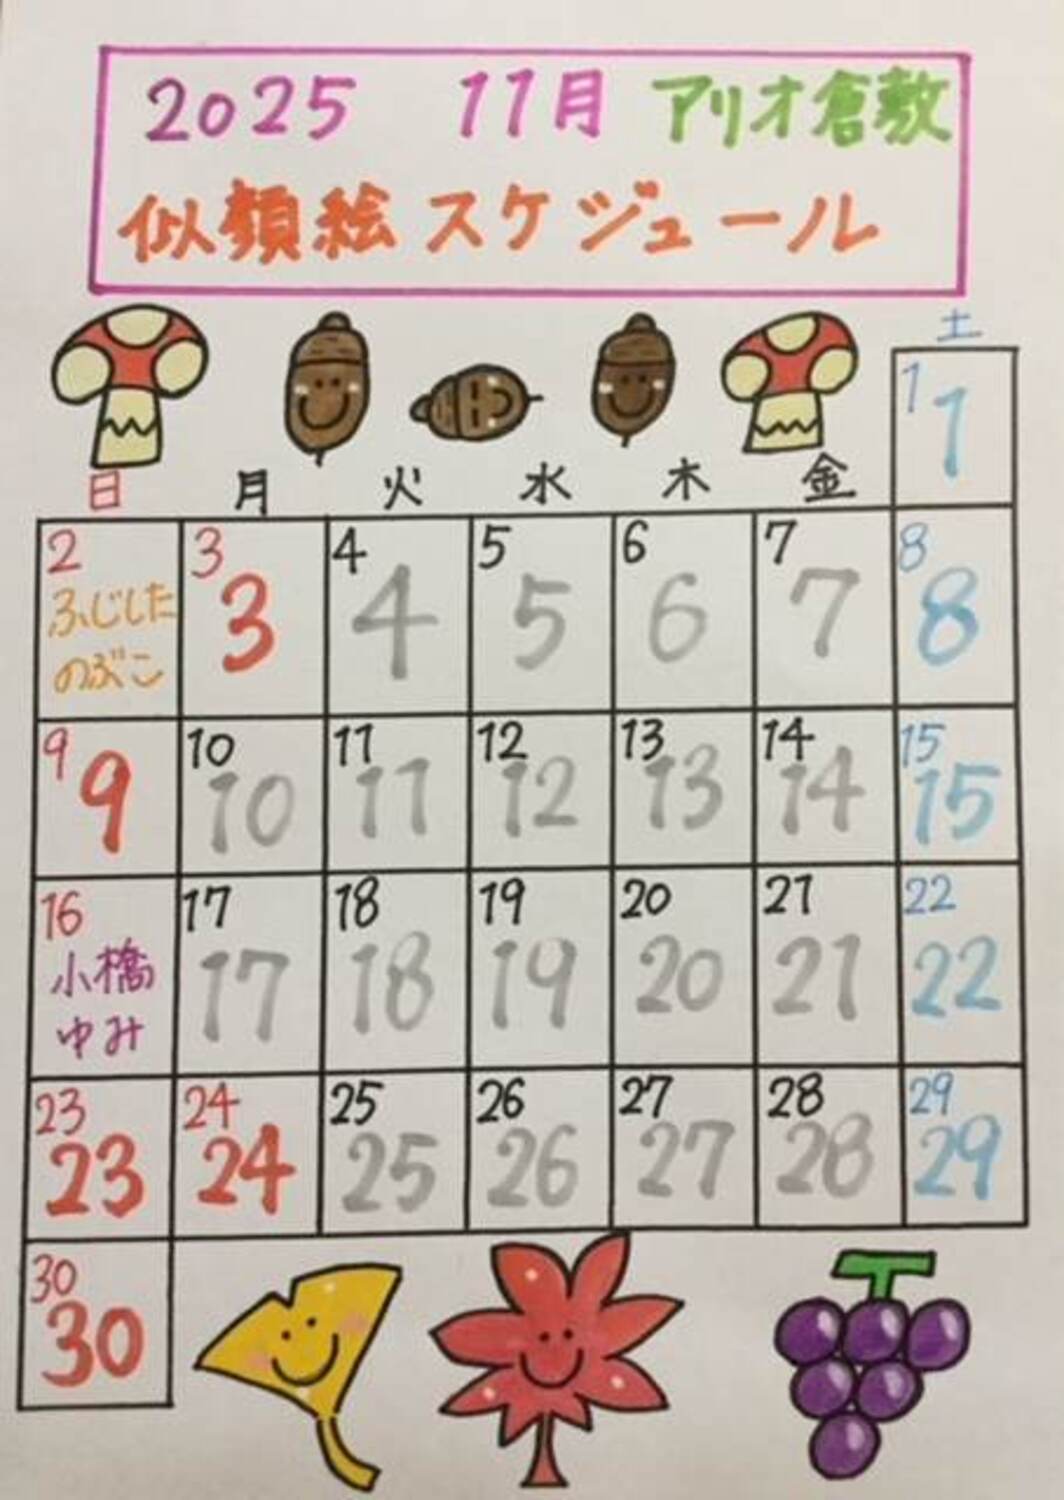 2025 11月 アリオ倉敷
似顔絵スケジュール
土
1
1
日 月 火 水 木 金
2 3 4 5 6 7 8
ふじした
のぶこ
3 4 5 6 7 8
9 10 11 12 13 14 15
9 10 11 12 13 14 15
16 17 18 19 20 21 22
小橋
ゆみ
17 18 19 20 21 22
23 24 25 26 27 28 29
23 24 25 26 27 28 29
30
30